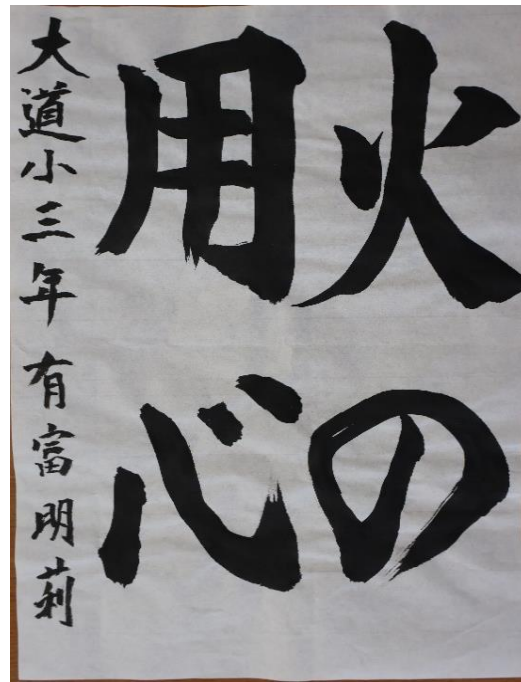 火の
用心
大道小三年 有富明莉